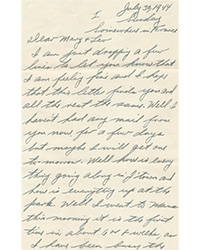 July 30, 1944
Sunday
Somewhere in France
Dear Mary & Lew
I am just dropping a few
lines to let you know that
I am feeling fine and I hope
that this little finds you and
all the rest the same. Well I
haven't had any mail from
you now for a few days
but maybe I will get one
to morrow. Well how is every
thing going along in town and
how is everything up at the
park. Well I went to Mass
this morning it is the first
time in about 6 or 7 weeks, as
I have been busy the